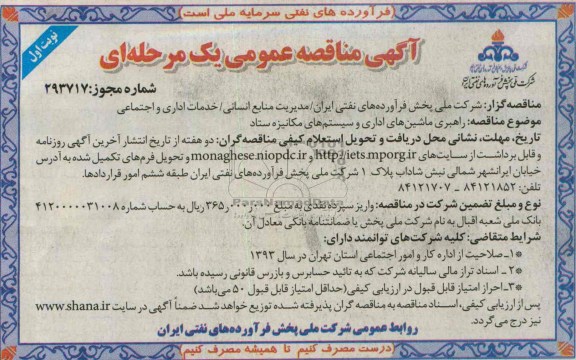 فرآورده های نفتی سرمایه ملی است
نوبت اول
آگهی مناقصه عمومی یک مرحله‌ای
شرکت ملی پخش فرآورده‌های نفتی ایران
شماره مجوز: ۲۹۳۷۱۷
مناقصه‌گزار: شرکت ملی پخش فرآورده‌های نفتی ایران/مدیریت منابع انسانی/خدمات اداری و اجتماعی
موضوع مناقصه: راهبری ماشین‌های اداری و سیستم‌های مکانیزه ستاد
تاریخ، مهلت، نشانی محل دریافت و تحویل استعلام کیفی مناقصه‌گران: دو هفته از تاریخ انتشار آخرین آگهی روزنامه
و قابل برداشت از سایت‌های http://iets.mporg.ir و monaghese.niopdc.ir و تحویل فرم‌های تکمیل شده به آدرس
خیابان ایرانشهر شمالی نبش شاداب پلاک ۱ شرکت ملی پخش فرآورده‌های نفتی ایران طبقه ششم امور قراردادها.
تلفن: ۸۴۱۲۱۸۵۲ - ۸۴۱۲۱۷۰۷
نوع و مبلغ تضمین شرکت در مناقصه: واریز سپرده نقدی به مبلغ ریال به حساب شماره ۴۱۲۰۰۰۰۳۱۰۰۸
بانک ملی شعبه اقبال به نام شرکت ملی پخش یا ضمانتنامه بانکی معادل آن.
شرایط متقاضی: کلیه شرکت‌های توانمند دارای:
*۱-صلاحیت از اداره کار و امور اجتماعی استان تهران در سال ۱۳۹۳
*۲- اسناد تراز مالی سالیانه شرکت که به تائید حسابرس و بازرس قانونی رسیده باشد.
*۳-احراز امتیاز قابل قبول در ارزیابی کیفی(حداقل امتیاز قابل قبول ۵۰ می‌باشد)
پس از ارزیابی کیفی، اسناد مناقصه به مناقصه گران پذیرفته شده توزیع خواهد شد ضمناً آگهی در سایت www.shana.ir
نیز درج می‌گردد.
روابط عمومی شرکت ملی پخش فرآورده‌های نفتی ایران
درست مصرف کنیم تا همیشه مصرف کنیم